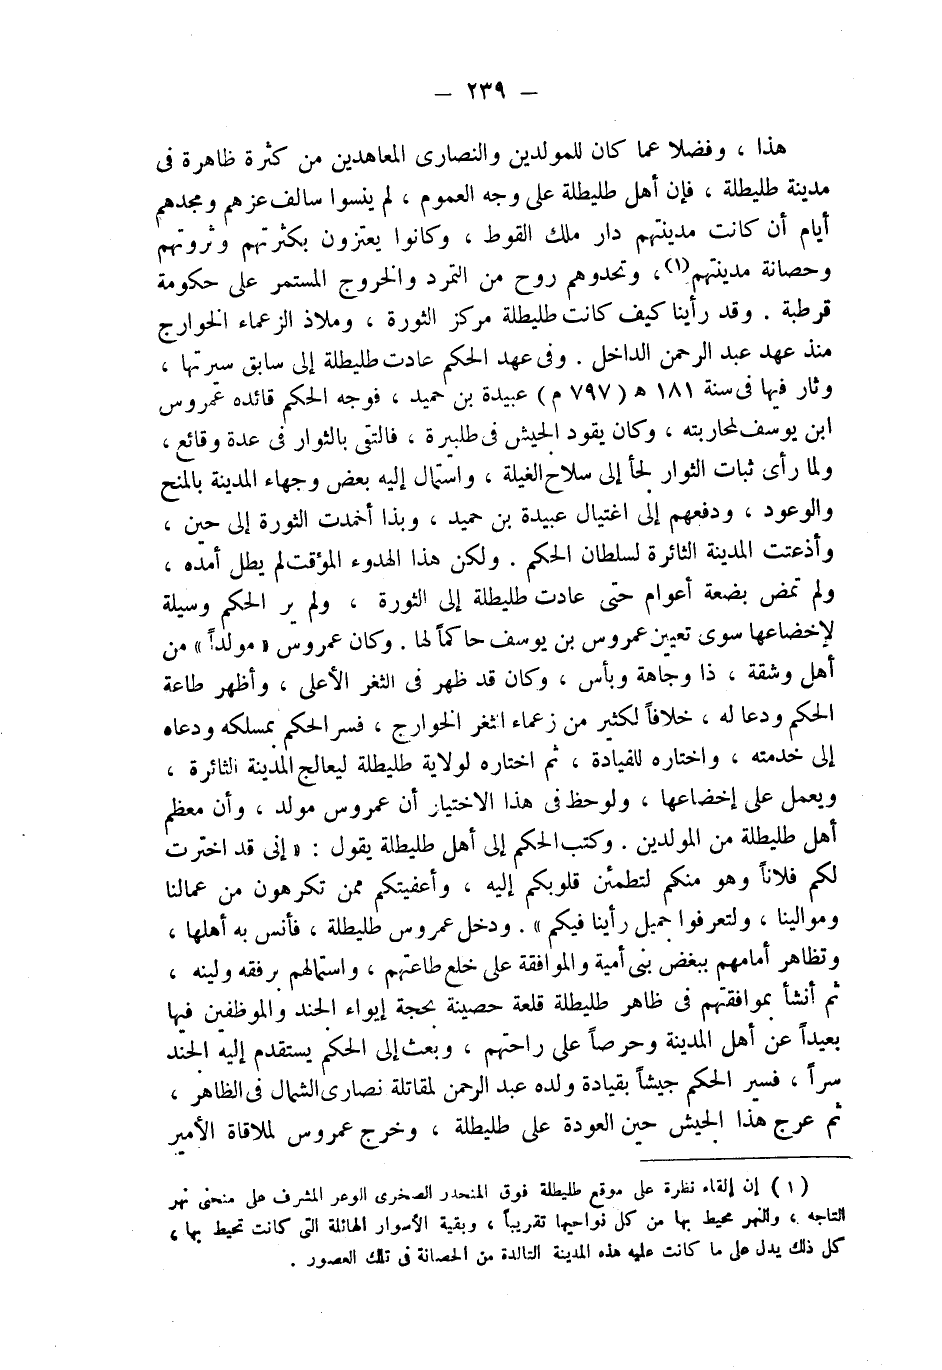 — ٢٣٩ —
هذا ، وفضلا عما كان للمولدين والنصارى المعاهدين من كثرة ظاهرة فى
مدينة طليطلة ، فإن أهل طليطلة على وجه العموم ، لم ينسوا سالف عزهم ومجدهم
أيام أن كانت مدينتهم دار ملك القوط ، وكانوا يعتزون بكثرتهم وثروتهم
وحصانة مدينتهم(١)، وتحدوهم روح من التمرد والخروج المستمر على حكومة
قرطبة . وقد رأينا كيف كانت طليطلة مركز الثورة ، وملاذ الزعماء الخوارج
منذ عهد عبد الرحمن الداخل . وفى عهد الحكم عادت طليطلة إلى سابق سيرتها ،
وثار فيها فى سنة ١٨١ ﻫ ( ٧٩٧ م ) عبيدة بن حميد ، فوجه الحكم قائده عمروس
ابن يوسف لمحاربته ، وكان يقود الجيش فى طلبيرة ، فالتقى بالثوار فى عدة وقائع ،
ولما رأى ثبات الثوار لجأ إلى سلاح الغيلة ، واستمال إليه بعض وجهاء المدينة بالمنح
والوعود ، ودفعهم إلى اغتيال عبيدة بن حميد ، وبذا أخمدت الثورة إلى حين ،
وأذعنت المدينة الثائرة لسلطان الحكم . ولكن هذا الهدوء المؤقت لم يطل أمده ،
ولم تمض بضعة أعوام حتى عادت طليطلة إلى الثورة ، ولم ير الحكم وسيلة
لإخضاعها سوى تعيين عمروس بن يوسف حاكماً لها . وكان عمروس « مولداً » من
أهل وشقة ، ذا وجاهة وبأس ، وكان قد ظهر فى الثغر الأعلى ، وأظهر طاعة
الحكم ودعا له ، خلافاً لكثير من زعماء الثغر الخوارج ، فسر الحكم بمسلكه ودعاه
إلى خدمته ، واختاره للقيادة ، ثم اختاره لولاية طليطلة ليعالج المدينة الثائرة ،
ويعمل على إخضاعها ، ولوحظ فى هذا الاختيار أن عمروس مولد ، وأن معظم
أهل طليطلة من المولدين . وكتب الحكم إلى أهل طليطلة يقول : « إنى قد اخترت
لكم فلاناً وهو منكم لتطمئن قلوبكم إليه ، وأعفيتكم ممن تكرهون من عمالنا
وموالينا ، ولتعرفوا جميل رأينا فيكم » . ودخل عمروس طليطلة ، فأنس به أهلها ،
وتظاهر أمامهم ببغض بنى أمية والموافقة على خلع طاعتهم ، واستمالهم برفقه ولينه ،
ثم أنشأ بموافقتهم فى ظاهر طليطلة قلعة حصينة بحجة إيواء الجند والموظفين فيها
بعيداً عن أهل المدينة وحرصاً على راحتهم ، وبعث إلى الحكم يستقدم إليه الجند
سراً ، فسير الحكم جيشاً بقيادة ولده عبد الرحمن لمقاتلة نصارى الشمال فى الظاهر ،
ثم عرج هذا الجيش حين العودة على طليطلة ، وخرج عمروس لملاقاة الأمير
( ١ ) إن إلقاء نظرة على موقع طليطلة فوق المنحدر الصخرى الوعر المشرف على منحنى نهر
التاجه ، والنهر محيط بها من كل نواحيها تقريباً ، وبقية الأسوار الهائلة التى كانت تحيط بها ،
كل ذلك يدل على ما كانت عليه هذه المدينة التالدة من الحصانة فى تلك العصور .